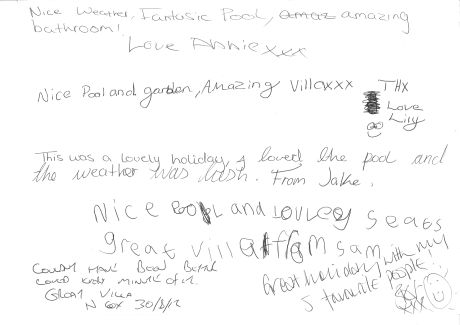 Nice Weather, Fantasic Pool, amaz amazing
bathroom!
Love Annie xxx
Nice Pool and garden, Amazing Villaxxx THX
Love
Lily
This was a lovely holiday, I loved the pool and
the weather was lush. From Jake.
Nice Pool and LOVLey Seats
great villa from sam
COULDN'T HAVE BEEN BETTER
LOVED EVERY MINUTE OF IT.
GREAT VILLA
N 30/8/12
Great holiday with my
5 favourite people!
xxx